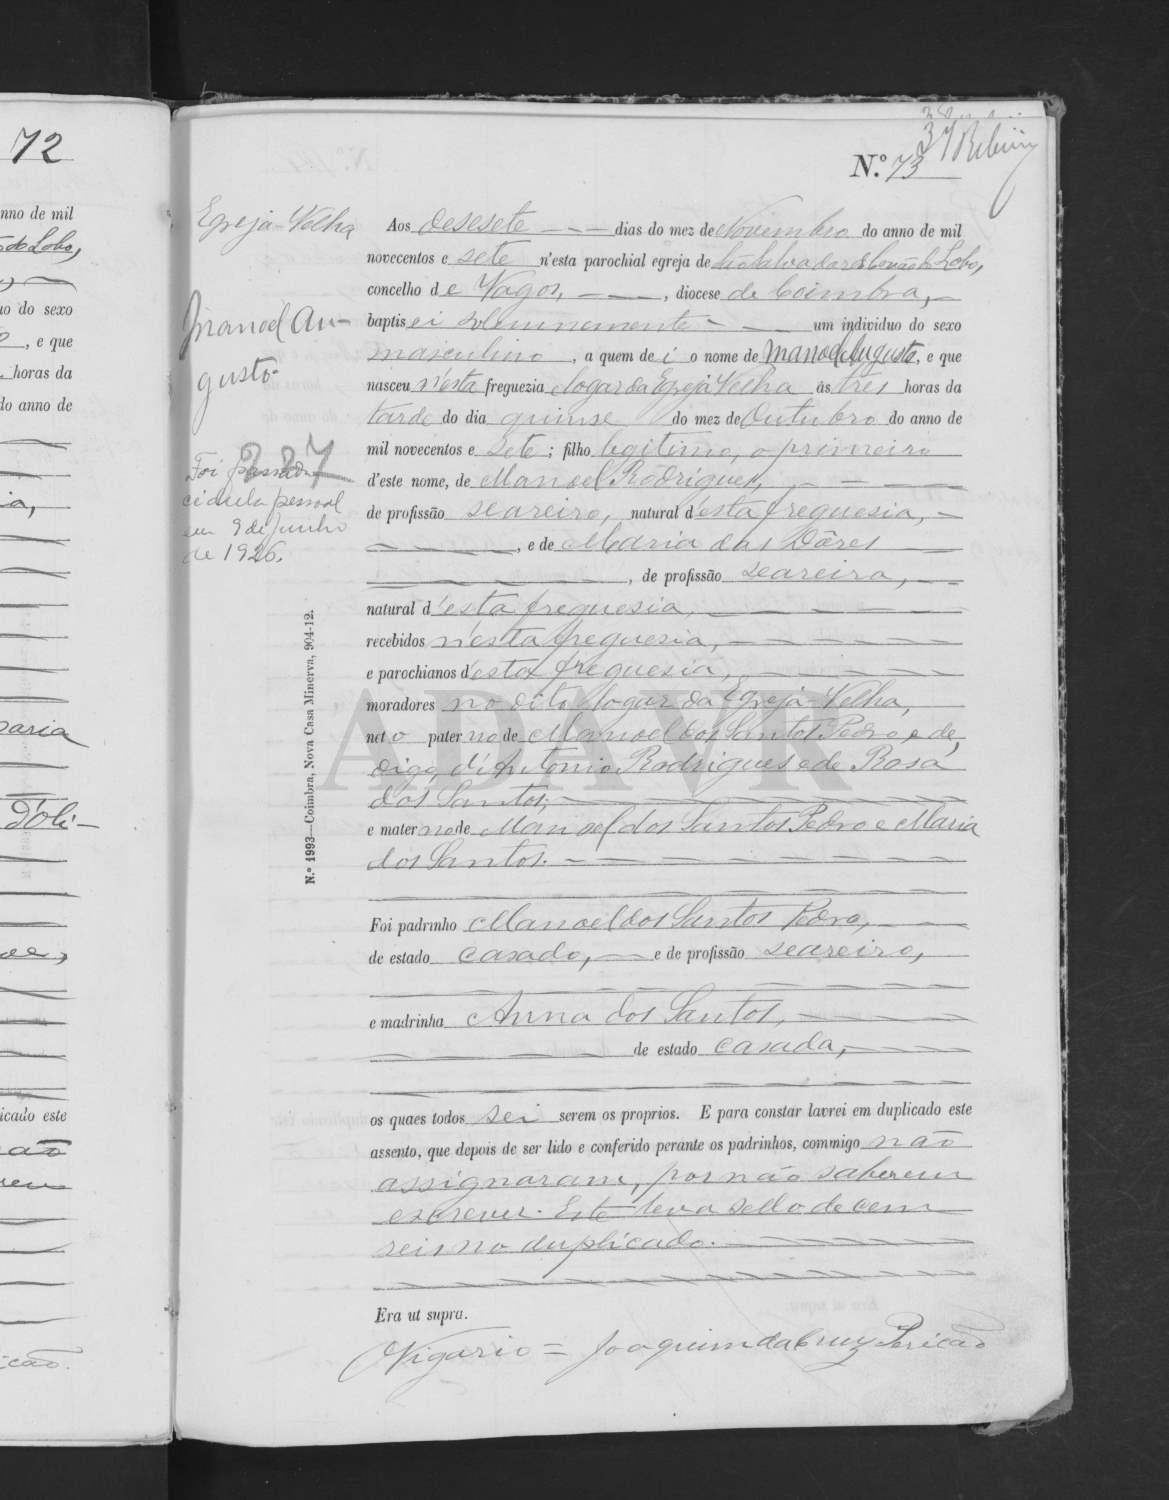 72
nno de mil
do Lobo,
uo do sexo
, e que
horas da
do anno de
ia,
aria
Dôli-
icado este
ao
N.º 73
37 Ribeiro
Egreja-Velha
Manoel Au-
gusto.
237
Foi passada
cidula pessoal
em 9 de Junho
de 1926.
N.º 1993—Coimbra, Nova Casa Minerva, 904-12.
Aos desesete dias do mez de Novembro do anno de mil
novecentos e sete n'esta parochial egreja de São Salvador de Covão do Lobo,
concelho de Vagos, diocese de Coimbra,
baptisei solemnemente um individuo do sexo
masculino, a quem dei o nome de Manoel Augusto, e que
nasceu n'esta freguezia e logar da Egreja Velha ás tres horas da
tarde do dia quinse do mez de Outubro do anno de
mil novecentos e sete; filho legitimo, o primeiro
d'este nome, de Manoel Rodrigues,
de profissão seareiro, natural d'esta freguesia,
, e de Maria das Dôres
, de profissão seareira,
natural d'esta freguesia,
recebidos n'esta freguesia,
e parochianos d'esta freguesia,
moradores no dito logar da Egreja-Velha,
neto paterno de Manoel dos Santos Pedro, e de,
digo, d'Antonio Rodrigues e de Rosa
dos Santos;
e materno de Manoel dos Santos Pedro e Maria
dos Santos.
Foi padrinho Manoel dos Santos Pedro,
de estado casado, e de profissão seareiro,
e madrinha Anna dos Santos,
de estado casada,
os quaes todos sei serem os proprios. E para constar lavrei em duplicado este
assento, que depois de ser lido e conferido perante os padrinhos, commigo não
assignaram, por não saberem
escrever. Este leva sello de cem
reis no duplicado.
Era ut supra.
O Vigario = Joaquim da Cruz Pericão
cão.
ADAVR